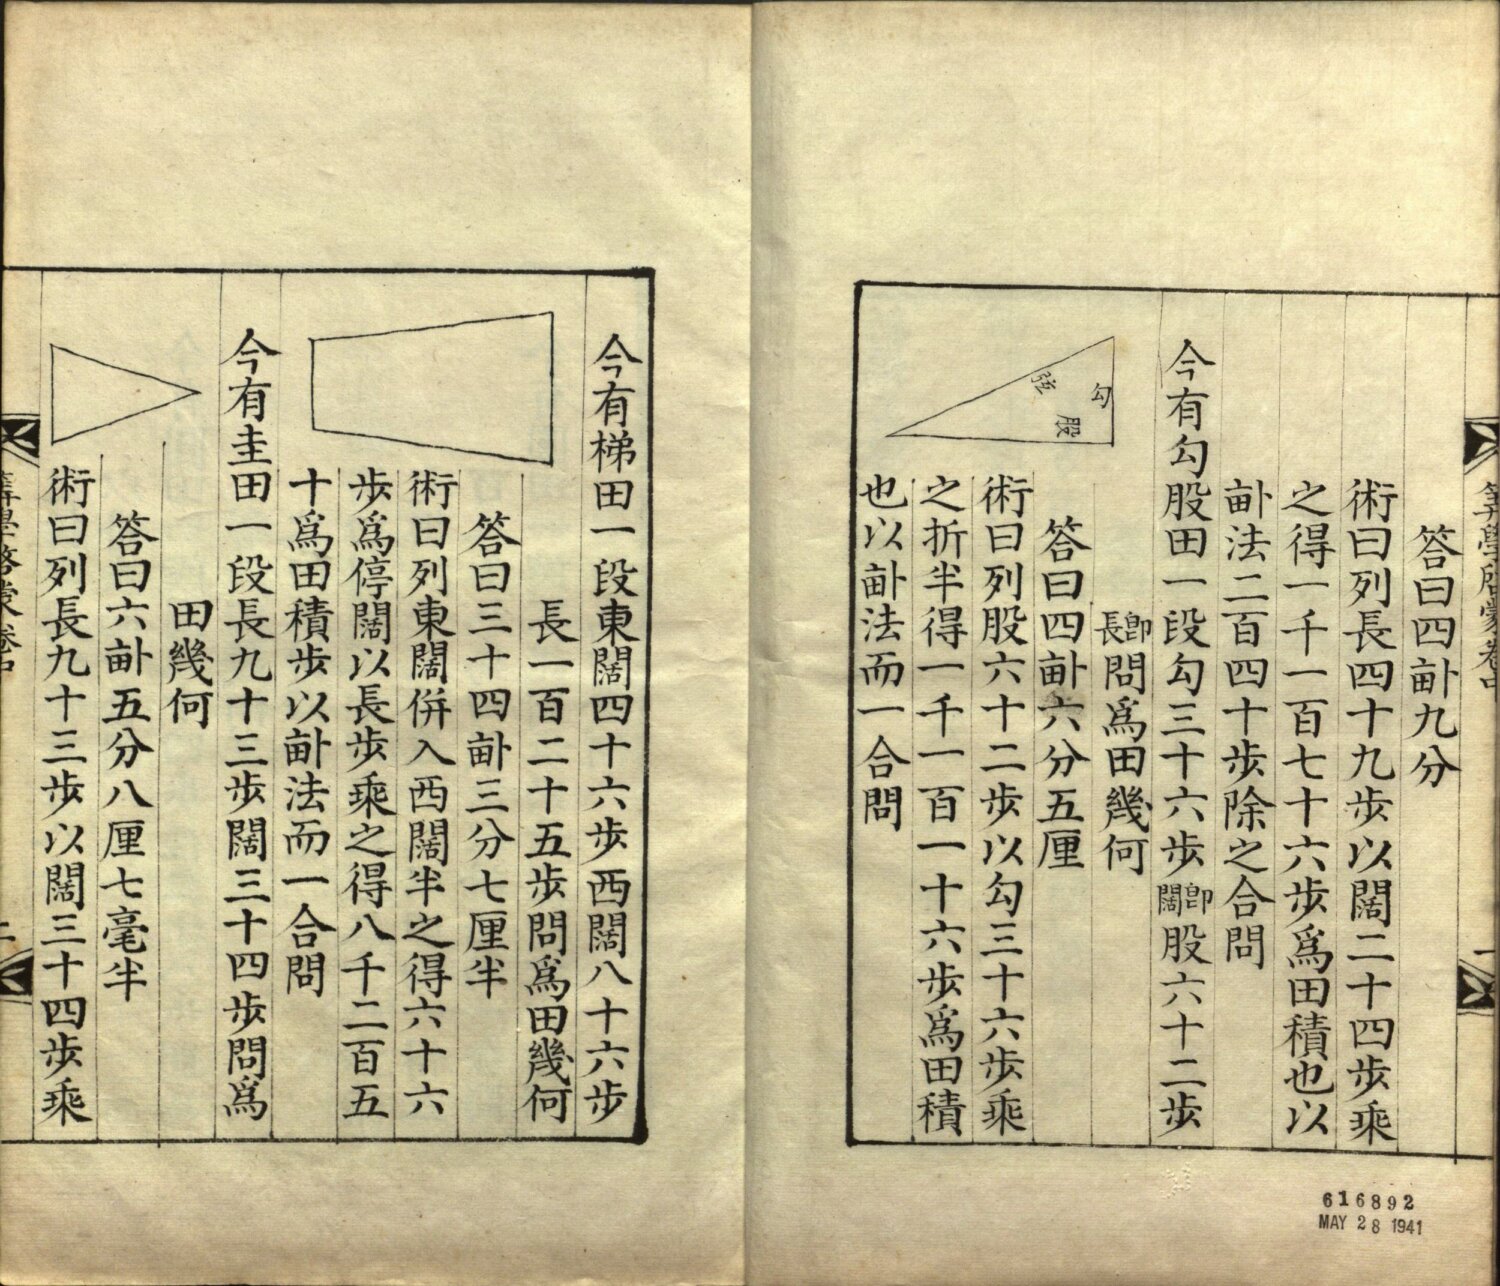 答曰四畝九分
術曰列長四十九歩以闊二十四歩乘
之得一千一百七十六歩爲田積也以
畝法二百四十歩除之合問
今有勾股田一段勾三十六歩即闊股六十二歩
即長問爲田幾何
勾
股
弦
答曰四畝六分五厘
術曰列股六十二歩以勾三十六歩乘
之折半得一千一百一十六歩爲田積
也以畝法而一合問
今有梯田一段東闊四十六歩西闊八十六歩
長一百二十五歩問爲田幾何
答曰三十四畝三分七厘半
術曰列東闊併入西闊半之得六十六
歩爲停闊以長歩乘之得八千二百五
十爲田積歩以畝法而一合問
今有圭田一段長九十三歩闊三十四歩問爲
田幾何
答曰六畝五分八厘七毫半
術曰列長九十三歩以闊三十四歩乘
616892
MAY 28 1941